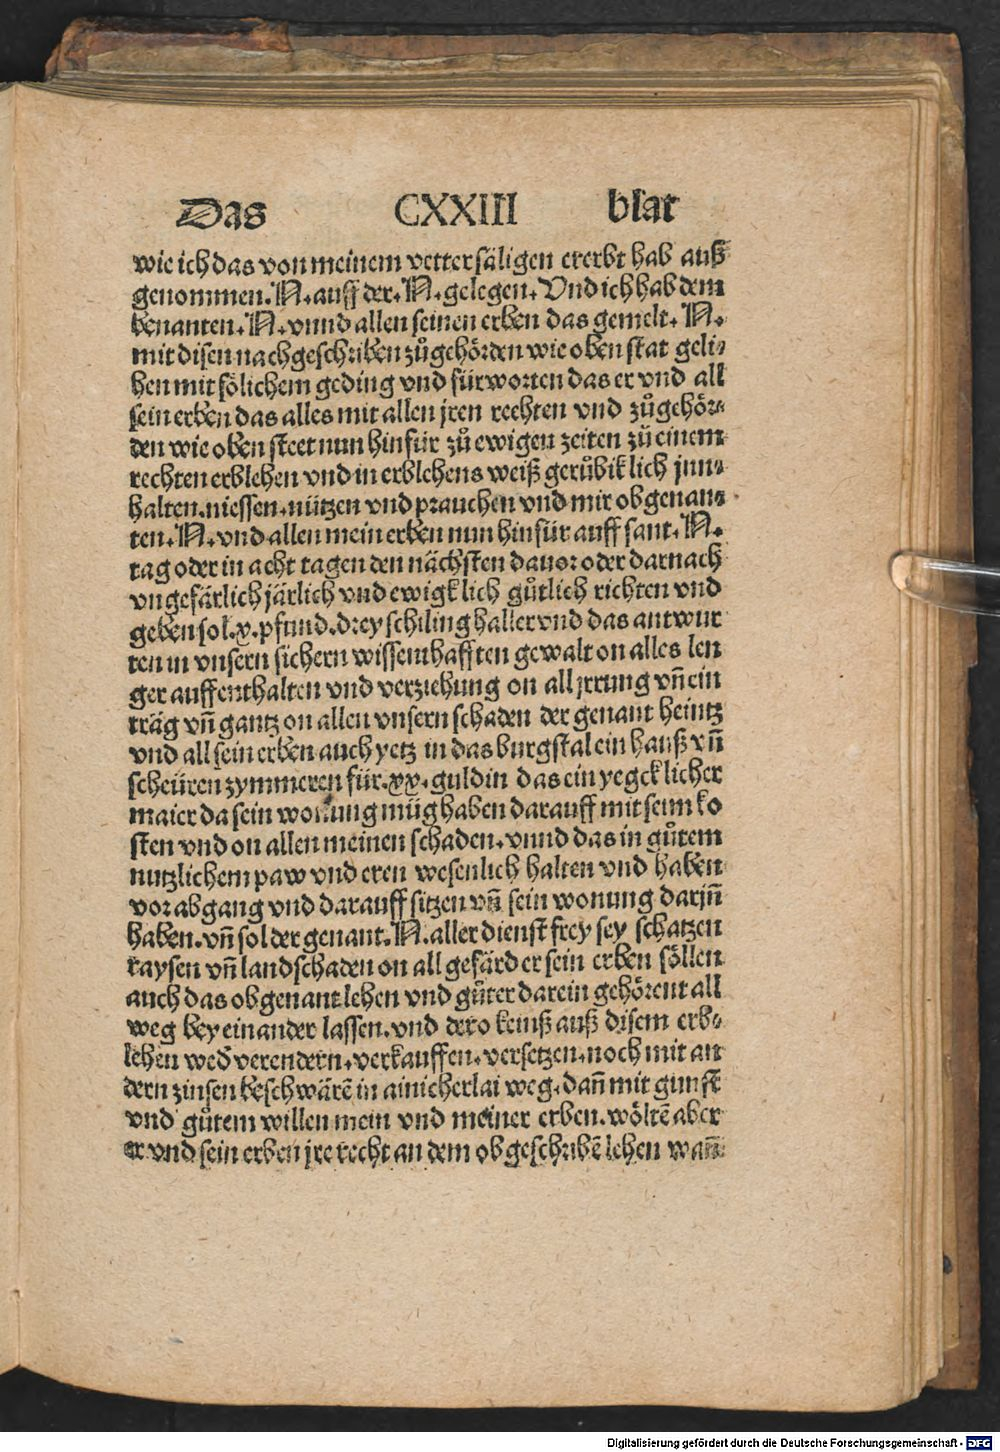 Das CXXIII blat
wie ich das von meinem vetter säligen ererbt hab auß
genommen. N. auff der. N. gelegen. Und ich hab dem
benanten. N. vnnd allen seinen erben das gemelt. N.
mit disen nachgeschriben zůgehörden wie oben stat geli⸗
hen mit sölichem geding vnd fürworten das er vnd all
sein erben das alles mit allen jren rechten vnd zůgehör⸗
den wie oben steet nun hinfür zů ewigen zeiten zů einem
rechten erblehen vnd in erblehens weiß gerůbiklich jnn⸗
halten. niessen. nützen vnd prauchen vnd mir obgenan⸗
ten. N. vnd allen mein erben nun hinfür auff sant. N.
tag oder in acht tagen den nächsten dauor oder darnach
vngefärlich järlich vnd ewigklich gůtlich richten vnd
geben sol. x. pfund. drey schiling haller vnd das antwur
ten in vnsern sichern wissenthafften gewalt on alles len
ger auffenthalten vnd verziehung on all jrrung vñ ein
träg vñ gantz on allen vnsern schaden der genant heintz
vnd all sein erben auch yetz in das burgstal ein hauß vñ
scheüren zymmeren für. xx. guldin das ein yegcklicher
maier da sein wonung müg haben darauff mit seim ko
sten vnd on allen meinen schaden. vnnd das in gůtem
nutzlichem paw vnd eren wesenlich halten vnd haben
vor abgang vnd darauff sitzen vñ sein wonung darjñ
haben. vñ sol der genant. N. aller dienst frey sey schatzen
raysen vñ landschaden on all gefärd er sein erben söllen
auch das obgenant lehen vnd gůter darein gehörent all
weg bey einander lassen. vnd dero keinß auß disem erb⸗
lehen wed̄ verendern. verkauffen. versetzen. noch mit an
dern zinsen beschwärē in ainicherlai weg. dañ mit gunst
vnd gůtem willen mein vnd meiner erben. wöltē aber
er vnd sein erben jre recht an dem obgeschribē lehen wañ
Digitalisierung gefördert durch die Deutsche Forschungsgemeinschaft - DFG